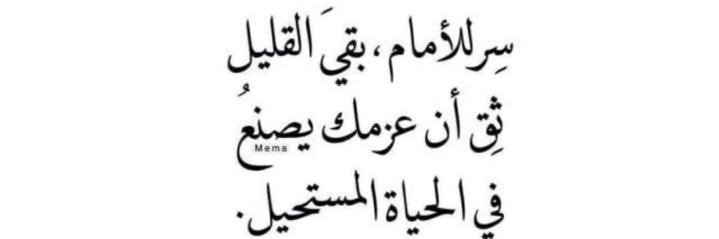 سِر للأمام، بقيَ القليل
ثِق أن عزمك يصنعُ
Mema
في الحياة المستحيل.